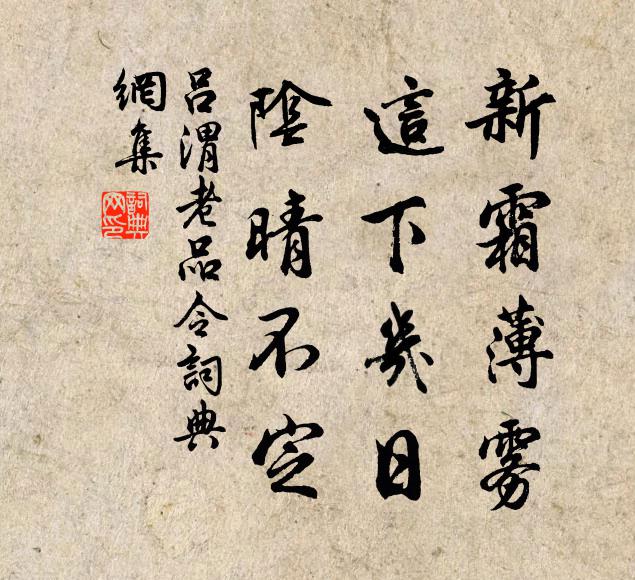 新霜薄雾
這下幾日
陰晴不定
呂渭老品令詞典
網集
詞典
网印